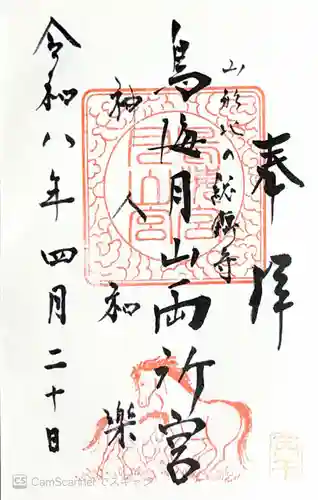 奉拝
山形地の総鎮守
鳥海月山両所宮
神人和楽
令和八年四月二十日
鳥海
月山宮
CS CamScannerでスキャン